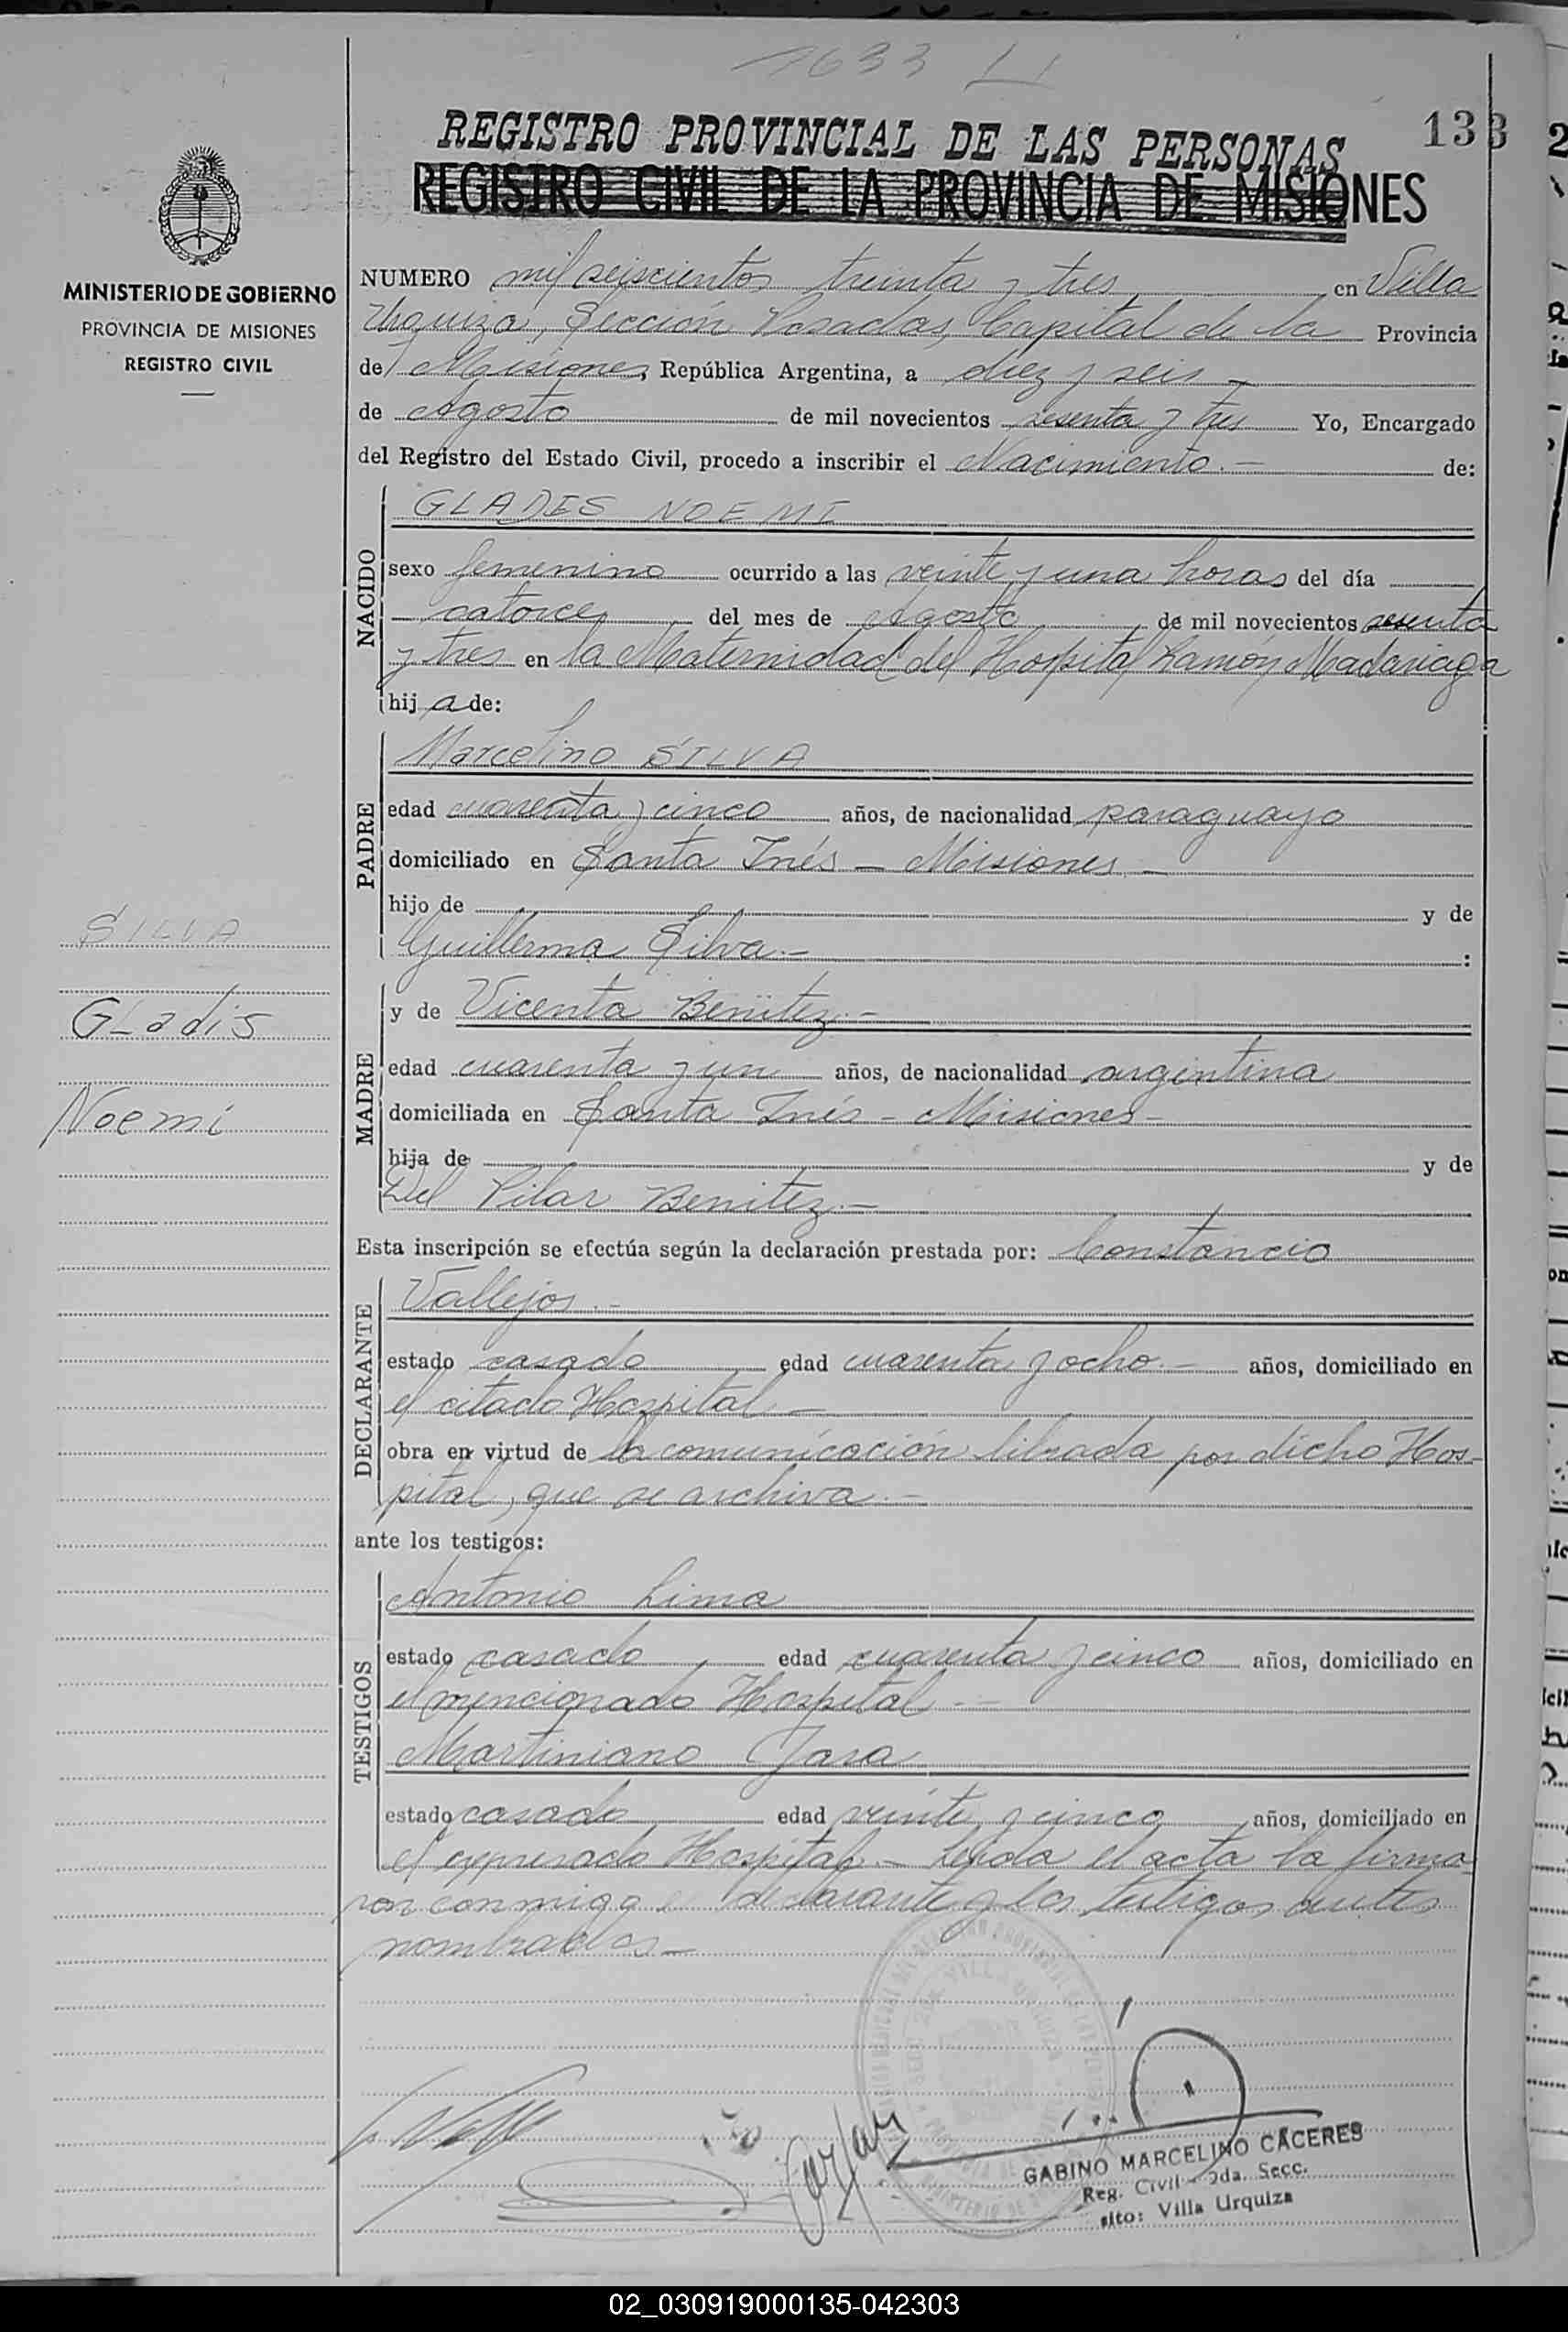 1633
133
REGISTRO PROVINCIAL DE LAS PERSONAS
REGISTRO CIVIL DE LA PROVINCIA DE MISIONES
MINISTERIO DE GOBIERNO
PROVINCIA DE MISIONES
REGISTRO CIVIL
NUMERO mil seiscientos treinta y tres en Villa
Urquiza, Sección Posadas, Capital de la Provincia
de Misiones, República Argentina, a diez y seis -
de Agosto de mil novecientos sesenta y tres Yo, Encargado
del Registro del Estado Civil, procedo a inscribir el Nacimiento.- de:
NACIDO
GLADIS NOEMI
sexo femenino ocurrido a las veinte y una horas del día
catorce del mes de Agosto de mil novecientos sesenta
y tres en la Maternidad del Hospital Ramón Madariaga
hij a de:
PADRE
Marcelino SILVA
edad cuarenta y cinco años, de nacionalidad paraguayo
domiciliado en Santa Inés - Misiones -
hijo de y de
Guillerma Silva.- :
SILVA
Gladis
Noemi
MADRE
y de Vicenta Benitez.-
edad cuarenta y un años, de nacionalidad argentina
domiciliada en Santa Inés - Misiones -
hija de y de
Del Pilar Benitez.-
Esta inscripción se efectúa según la declaración prestada por: Constancio
DECLARANTE
Vallejos.-
estado casado edad cuarenta y ocho.- años, domiciliado en
el citado Hospital -
obra en virtud de la comunicación librada por dicho Hos-
pital, que se archiva.-
ante los testigos:
TESTIGOS
Antonio Lima
estado casado edad cuarenta y cinco años, domiciliado en
el mencionado Hospital -
Martiniano Jara
estado casado edad veinte y cinco años, domiciliado en
el expresado Hospital.- Leída el acta la firma
ron conmigo el declarante y los testigos antes
nombrados -
GABINO MARCELINO CACERES
Reg. Civil - 2da. Secc.
sito: Villa Urquiza
02_030919000135-042303